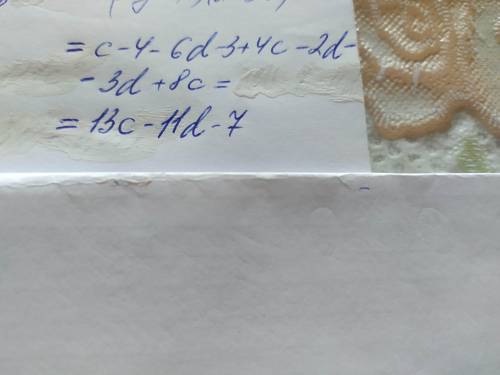 = c - 4 - 6d - 3 + 4c - 2d -
- 3d + 8c =
= 13c - 11d - 7